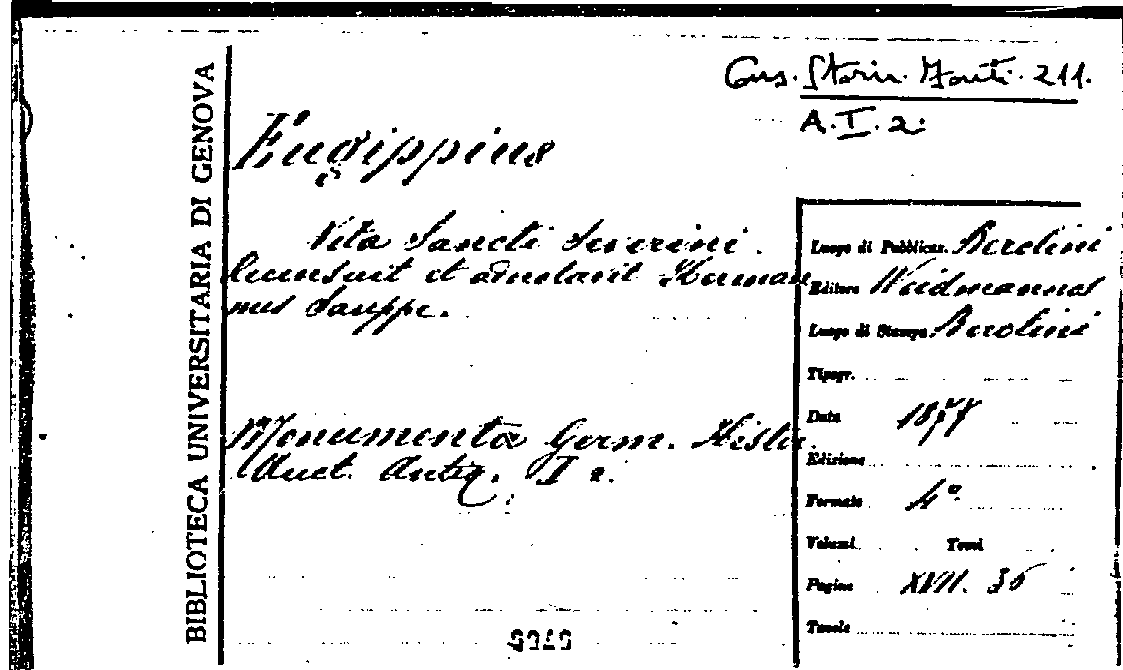 BIBLIOTECA UNIVERSITARIA DI GENOVA
Cons. Storia. Fonti. 211.
A. I. 2.
Eugippius
Vita Sancti Severini.
Recensuit et adnotavit Herman
nus Sauppe.
Monumenta Germ. Histor.
Auct. Antiq. I 2.
Luogo di Pubblicaz. Berolini
Editore Weidmannos
Luogo di Stampa Berolini
Tipogr.
Data 1877
Edizione
Formato 4º
Volumi Tomi
Pagine XVII. 36
Tavole